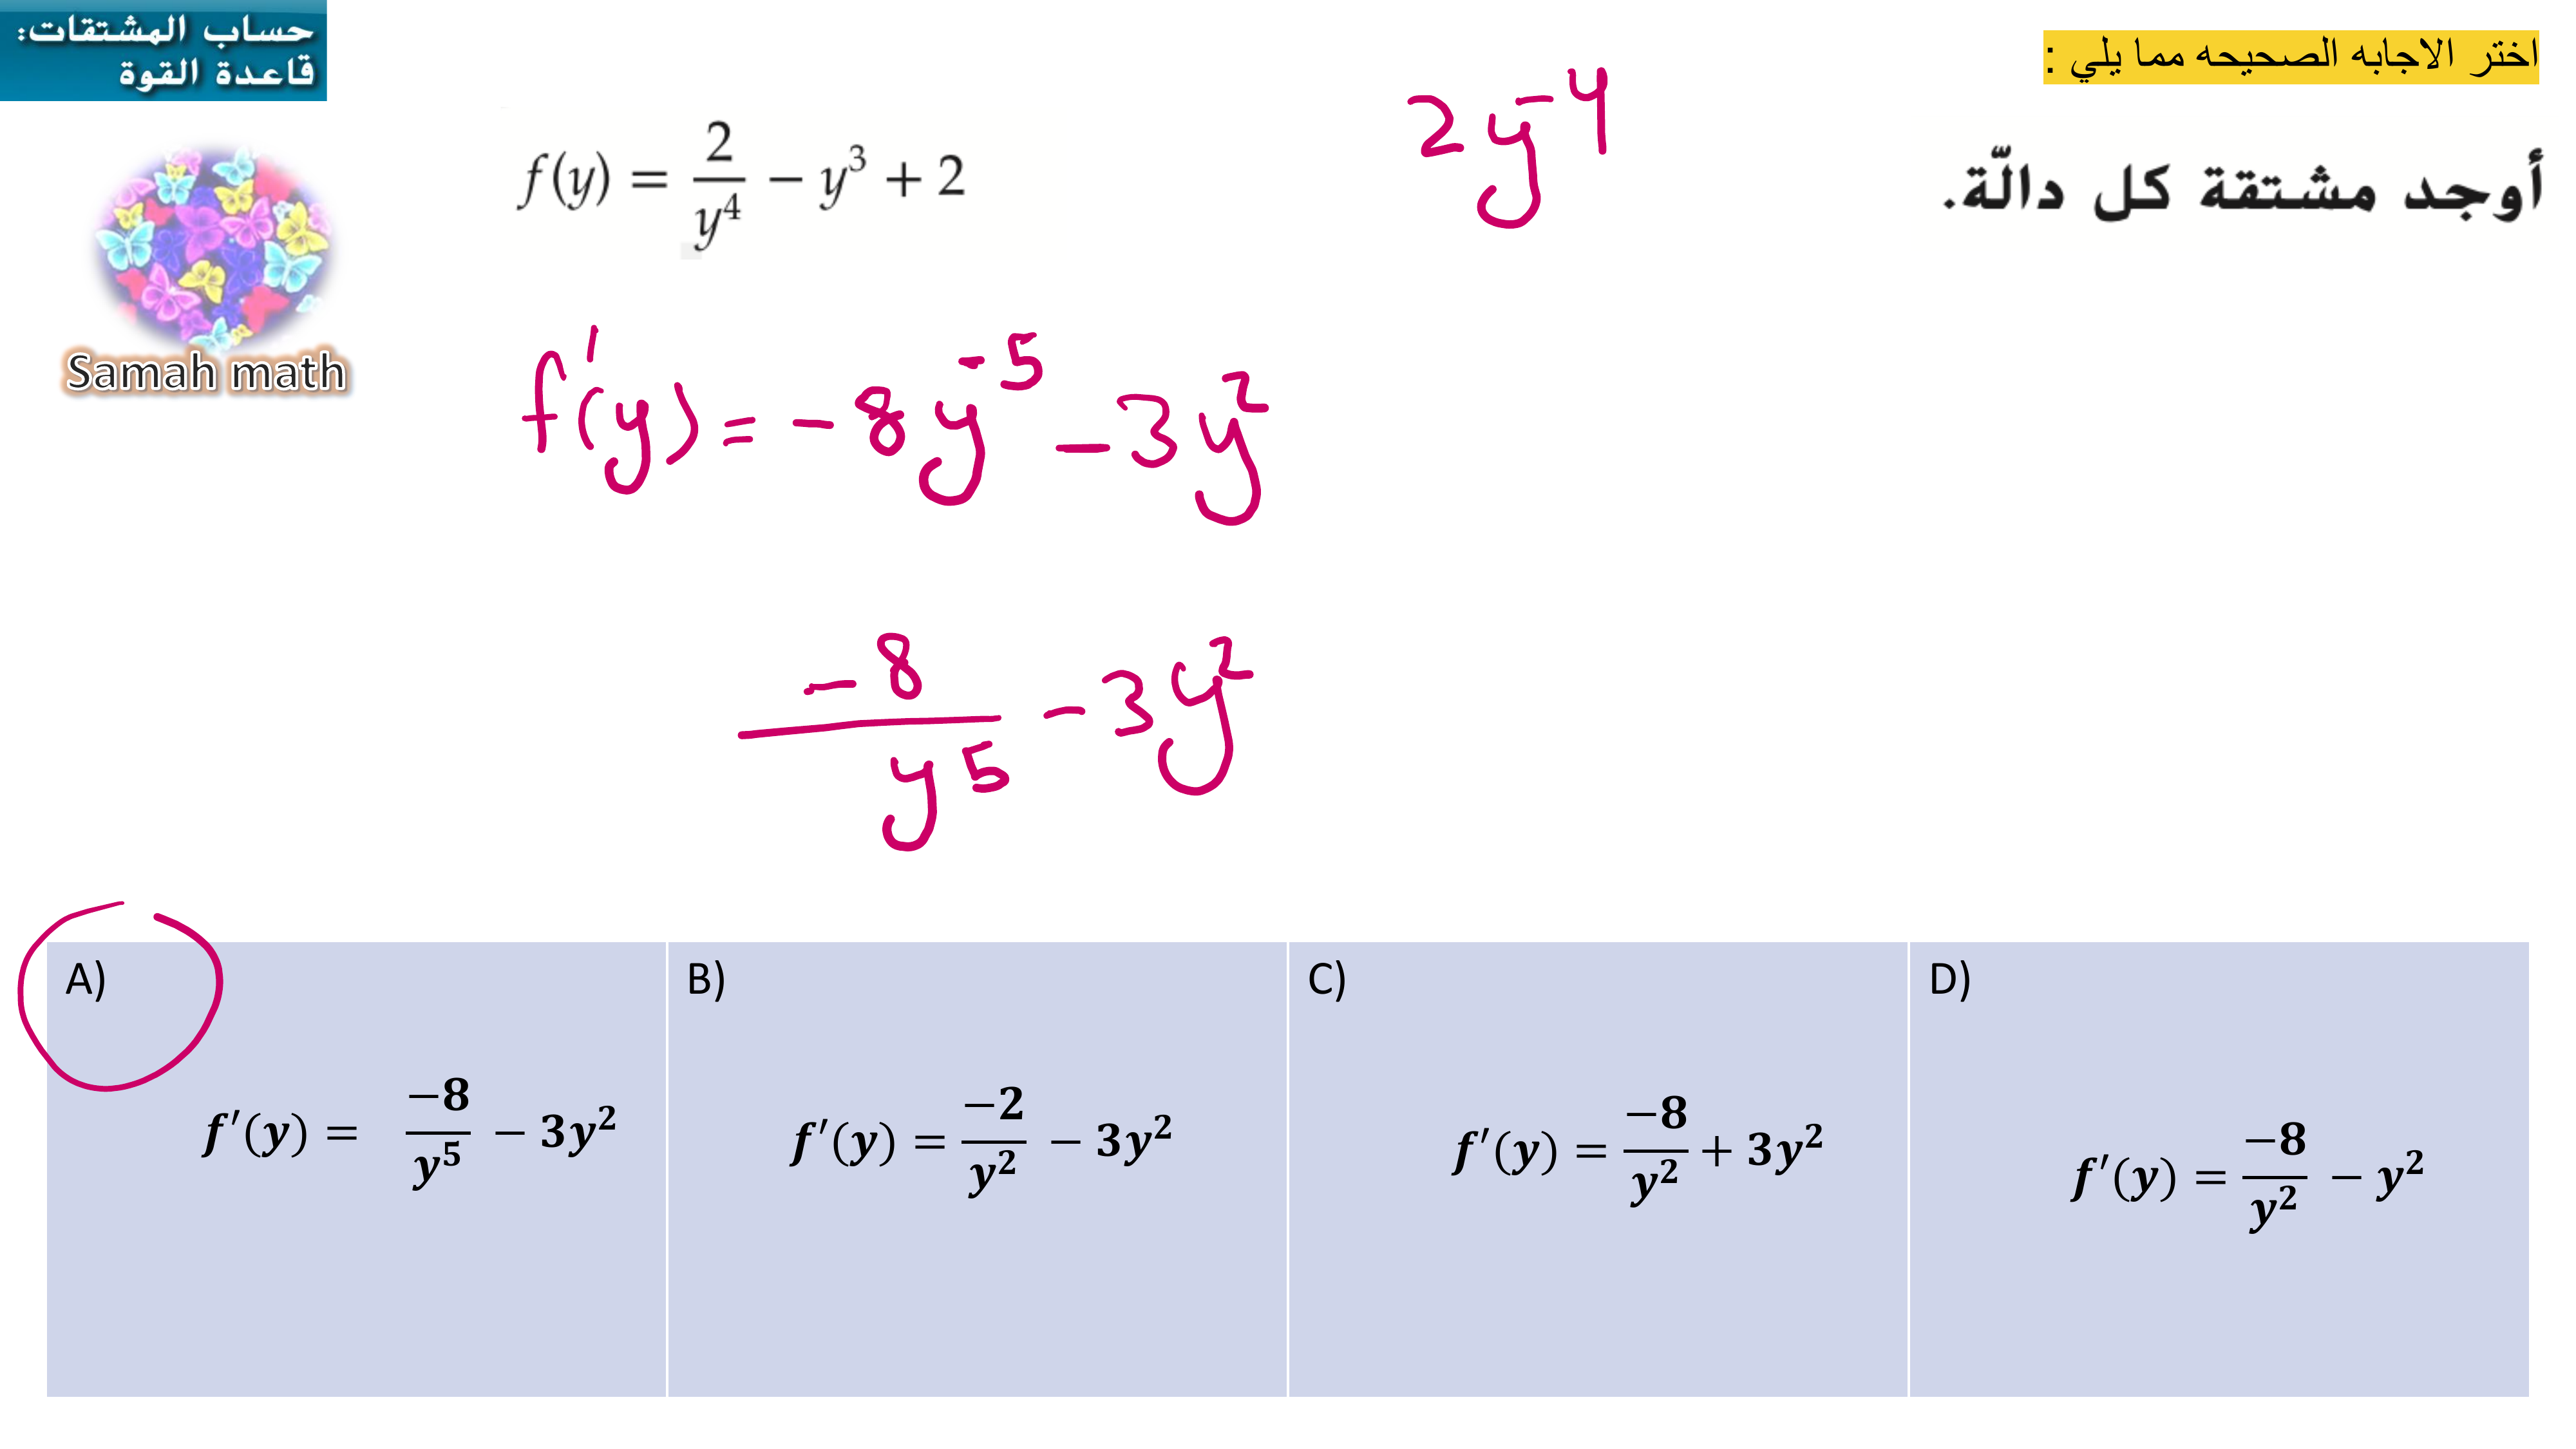 حساب المشتقات:
قاعدة القوة
اختر الاجابه الصحيحه مما يلي :
أوجد مشتقة كل دالّة.
f(y) = 2/y⁴ − y³ + 2
2y⁻⁴
Samah math
f'(y) = −8y⁻⁵ − 3y²
−8/y⁵ − 3y²
A)
f′(y) = −8/y⁵ − 3y²
B)
f′(y) = −2/y² − 3y²
C)
f′(y) = −8/y² + 3y²
D)
f′(y) = −8/y² − y²